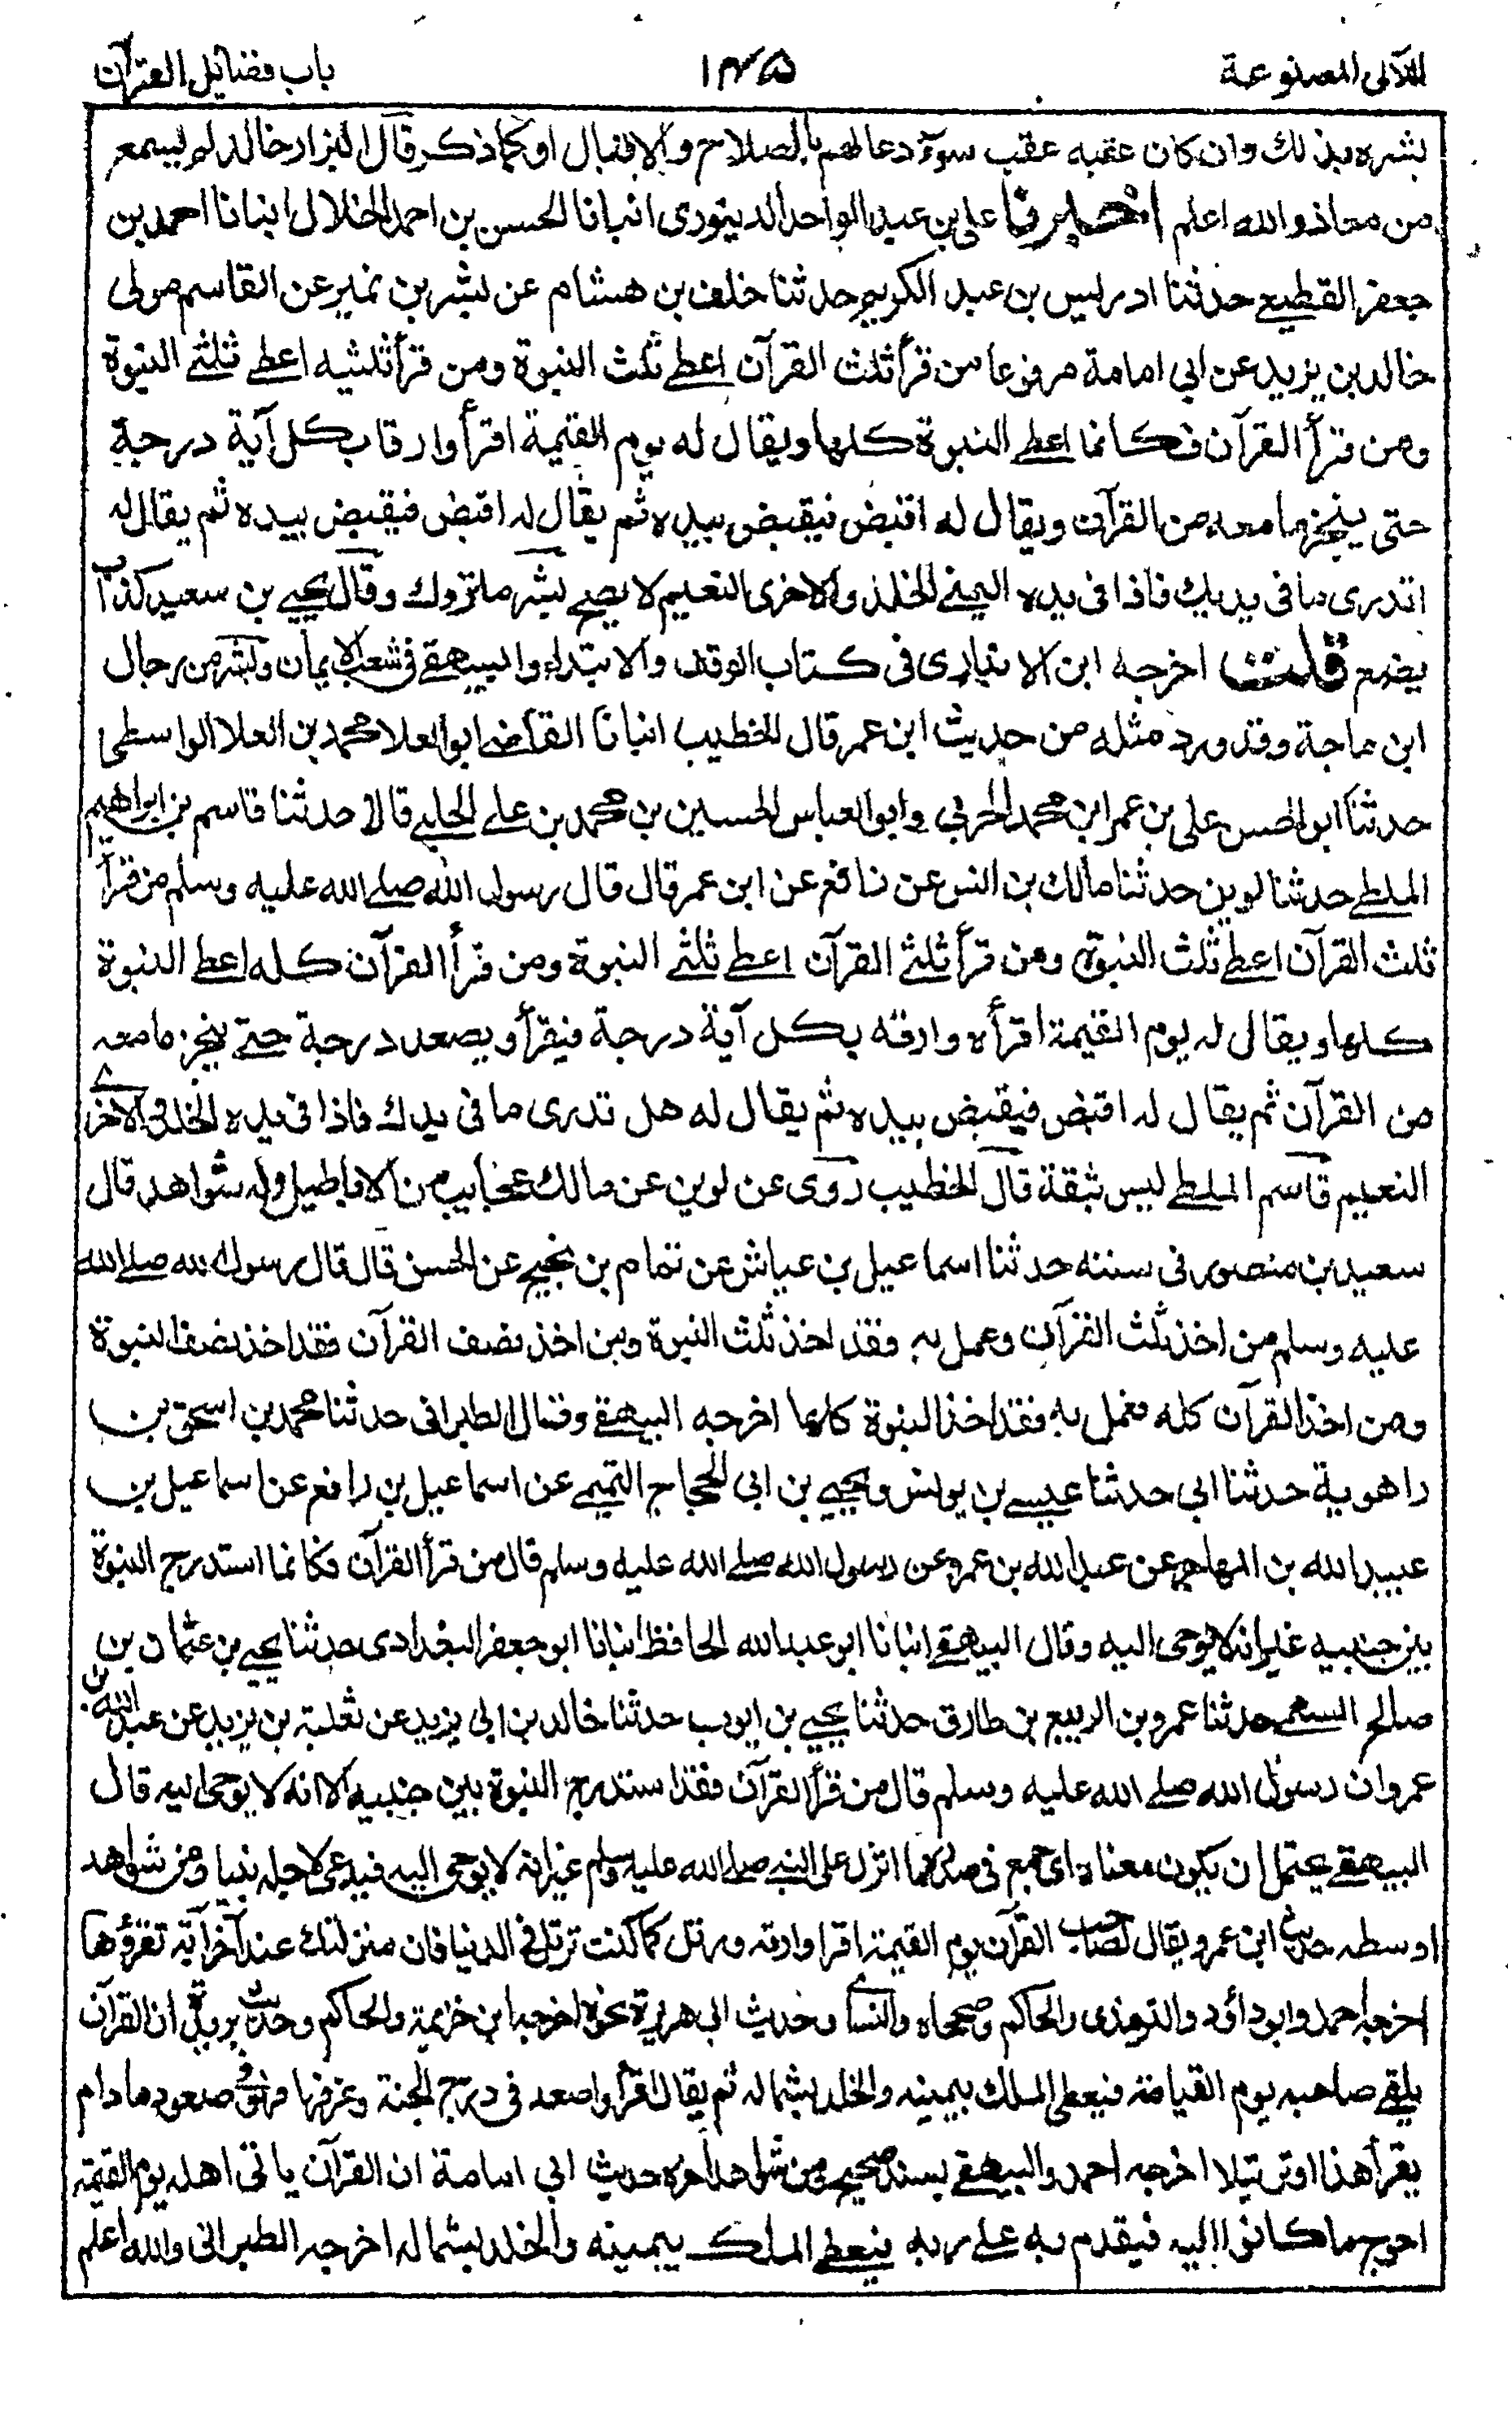 اللآلى المصنوعة
١٢٥
باب فضائل القرآن
بشره بذلك وان كان عقبه عقب سوء دعا لهم بالصلاح والاقبال او كما ذكر قال البزار خالد لم يسمع
من معاذ والله اعلم اخبرنا على بن عبد الواحد الدينورى انبانا الحسن بن احمد الخلال انبانا احمد بن
جعفر القطيعے حدثنا ادريس بن عبد الكريم حدثنا خلف بن هشام عن بشر بن نمير عن القاسم مولى
خالد بن يزيد عن ابي امامة مرفوعا من قرأ ثلث القرآن اعطے ثلث النبوة ومن قرأ ثلثيه اعطے ثلثے النبوة
ومن قرأ القرآن فكانما اعطے النبوة كلها ويقال له يوم القيمة اقرأ وارقا بكل آية درجة
حتى ينجز ما معه من القرآن ويقال له اقبض فيقبض بيده ثم يقال له اقبض فيقبض بيده ثم يقال له
اتدرى ما فى يديك فاذا فى يده اليمنے الخلد والاخرى النعيم لا يصح بشر متروك وقال يحيے بن سعيد كذاب
يضع قلت اخرجه ابن الانبارى فى كتاب الوقف والابتداء والبيهقے فى شعب الايمان وبشر من رجال
ابن ماجة وقد ورد مثله من حديث ابن عمر قال الخطيب انبانا القاضے ابو العلا محمد بن العلا الواسطى
حدثنا ابو الحسن على بن عمر ابن محمد الحربي وابو العباس الحسين بن محمد بن علے الحلبے قالا حدثنا قاسم بن ابراهيم
الملطے حدثنا لوين حدثنا مالك بن انس عن نافع عن ابن عمر قال قال رسول الله صلے الله عليه وسلم من قرأ
ثلث القرآن اعطے ثلث النبوة ومن قرأ ثلثے القرآن اعطے ثلثے النبوة ومن قرأ القرآن كله اعطے النبوة
كلها ويقال له يوم القيمة اقرأه وارقه بكل آية درجة فيقرأ ويصعد درجة حتے ينجز ما معه
من القرآن ثم يقال له اقبض فيقبض بيده ثم يقال له هل تدرى ما فى يدك فاذا فى يده الخلد وفى الاخرے
النعيم قاسم الملطے ليس بثقة قال الخطيب روى عن لوين عن مالك عجائب من الاباطيل وله شواهد قال
سعيد بن منصور فى سننه حدثنا اسماعيل بن عياش عن تمام بن نجيح عن الحسن قال قال رسول الله صلے الله
عليه وسلم من اخذ ثلث القرآن وعمل به فقد اخذ ثلث النبوة ومن اخذ نصف القرآن فقد اخذ نصف النبوة
ومن اخذ القرآن كله فعمل به فقد اخذ النبوة كلها اخرجه البيهقے وقال الطبرانى حدثنا محمد بن اسحق بن
راهوية حدثنا ابي حدثنا عيسے بن يونس ويحيے بن ابى الحجاج التميمے عن اسماعيل بن رافع عن اسماعيل بن
عبيد الله بن المهاجر عن عبد الله بن عمرو عن رسول الله صلے الله عليه وسلم قال من قرأ القرآن فكانما استدرج النبوة
بين جنبيه غير انه لا يوحى اليه وقال البيهقے انبانا ابو عبد الله الحافظ انبانا ابو جعفر البغدادى حدثنا يحيے بن عثمان بن
صالح السهمے حدثنا عمرو بن الربيع بن طارق حدثنا يحيے بن ايوب حدثنا خالد بن ابى يزيد عن ثعلبة بن يزيد عن عبد الله بن
عمرو ان رسول الله صلے الله عليه وسلم قال من قرأ القرآن فقد استدرج النبوة بين جنبيه الا انه لا يوحى اليه قال
البيهقے يحتمل ان يكون معناه اى جمع فى صدره ما انزل على النبے صلے الله عليه وسلم غير انه لا يوحى اليه فيدعى لاجله نبيا ومن شواهد
اوسطه حديث ابن عمرو يقال لصاحب القرآن يوم القيمة اقرا وارقه ورتل كما كنت ترتل فى الدنيا فان منزلتك عند آخر آية تقرؤها
اخرجه احمد وابو داؤد والترمذى والحاكم وصححاه والنسائے وحديث ابى هريرة نحوه اخرجه ابن خزيمة والحاكم وحديث بريدة ان القرآن
يلقے صاحبه يوم القيامة فيعطى الملك بيمينه والخلد بشماله ثم يقال اقرأ واصعد فى درج الجنة وغرفها فهو فى صعود ما دام
يقرأ هذا او ترتيلا اخرجه احمد والبيهقے بسند صحيح ومن شواهد آخره حديث ابي امامة ان القرآن ياتى اهله يوم القيمة
احوج ما كانوا اليه فيقدم به علے ربه فيعطے الملك بيمينه والخلد بشماله اخرجه الطبرانى والله اعلم